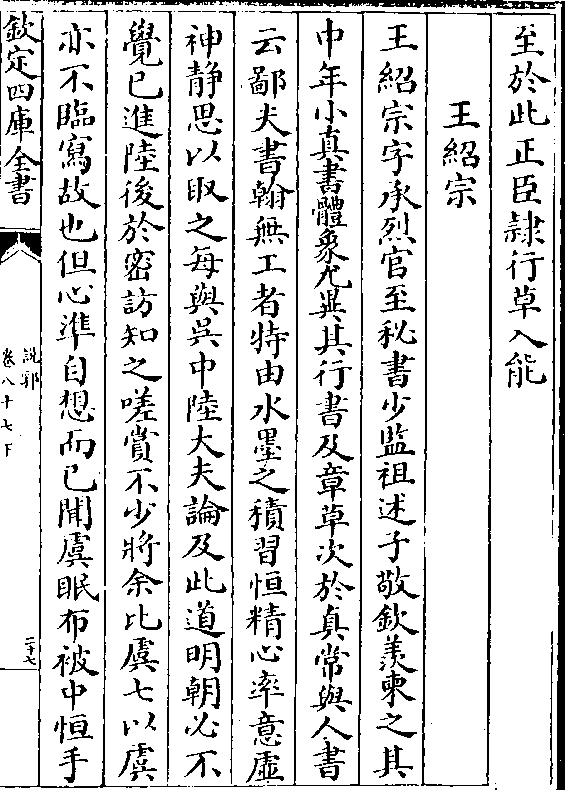 至於此正臣隷行草入能
王紹宗
王紹宗字承烈官至秘書少監祖述子敬欽羨柬之其
中年小真書體象尤異其行書及章草次於真常與人書
云鄙夫書翰無工者特由水墨之積習恒精心率意虚
神静思以取之每與吳中陸大夫論及此道明朝必不
覺已進陸後於密訪知之嗟賞不少將余比虞七以虞
亦不臨寫故也但心準目想而已聞虞眠布被中恒手
欽定四庫全書
說郛
卷八十七下
二十七